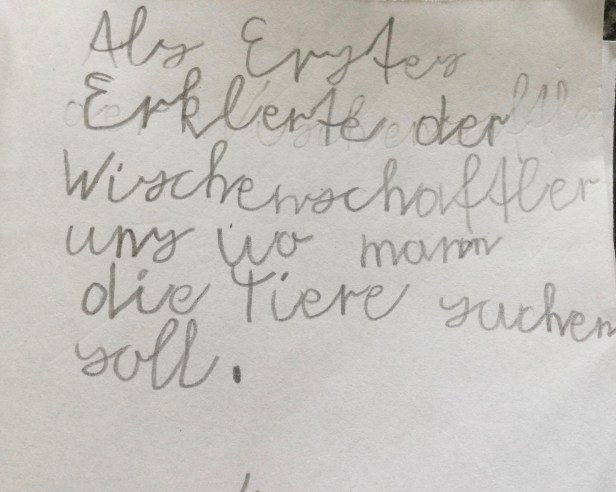 Als Erstes
Erklerte der
Wischenschaftler
uns wo mann
die Tiere suchen
soll.